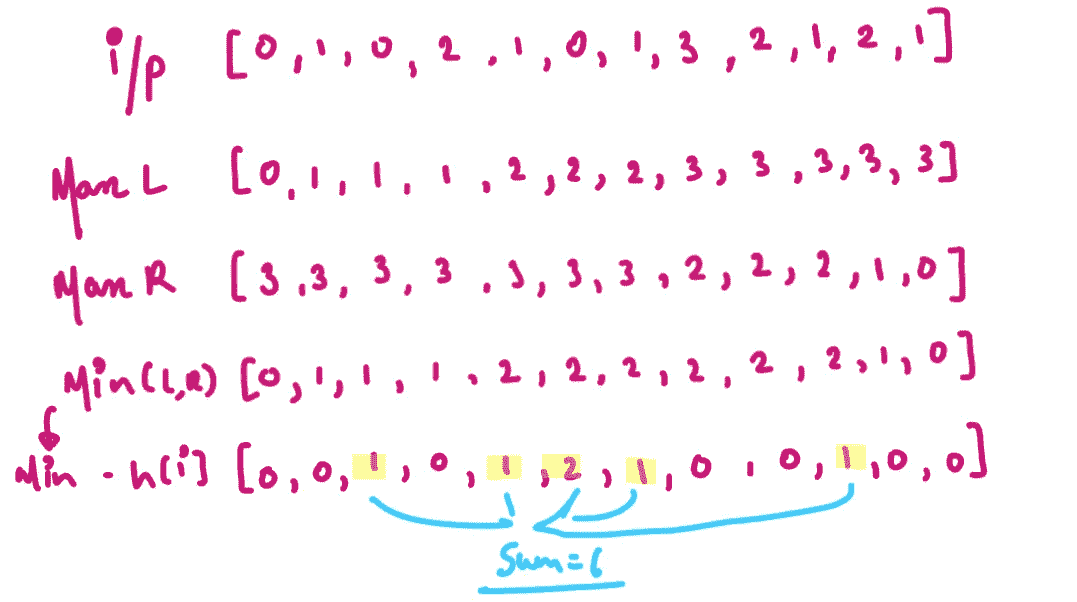 i/p [0, 1, 0, 2, 1, 0, 1, 3, 2, 1, 2, 1]
Max L [0, 1, 1, 1, 2, 2, 2, 3, 3, 3, 3, 3]
Max R [3, 3, 3, 3, 3, 3, 3, 2, 2, 2, 1, 0]
Min(L,R) [0, 1, 1, 1, 2, 2, 2, 2, 2, 2, 1, 0]
Min - h[i] [0, 0, 1, 0, 1, 2, 1, 0, 0, 1, 0, 0]
Sum = 6